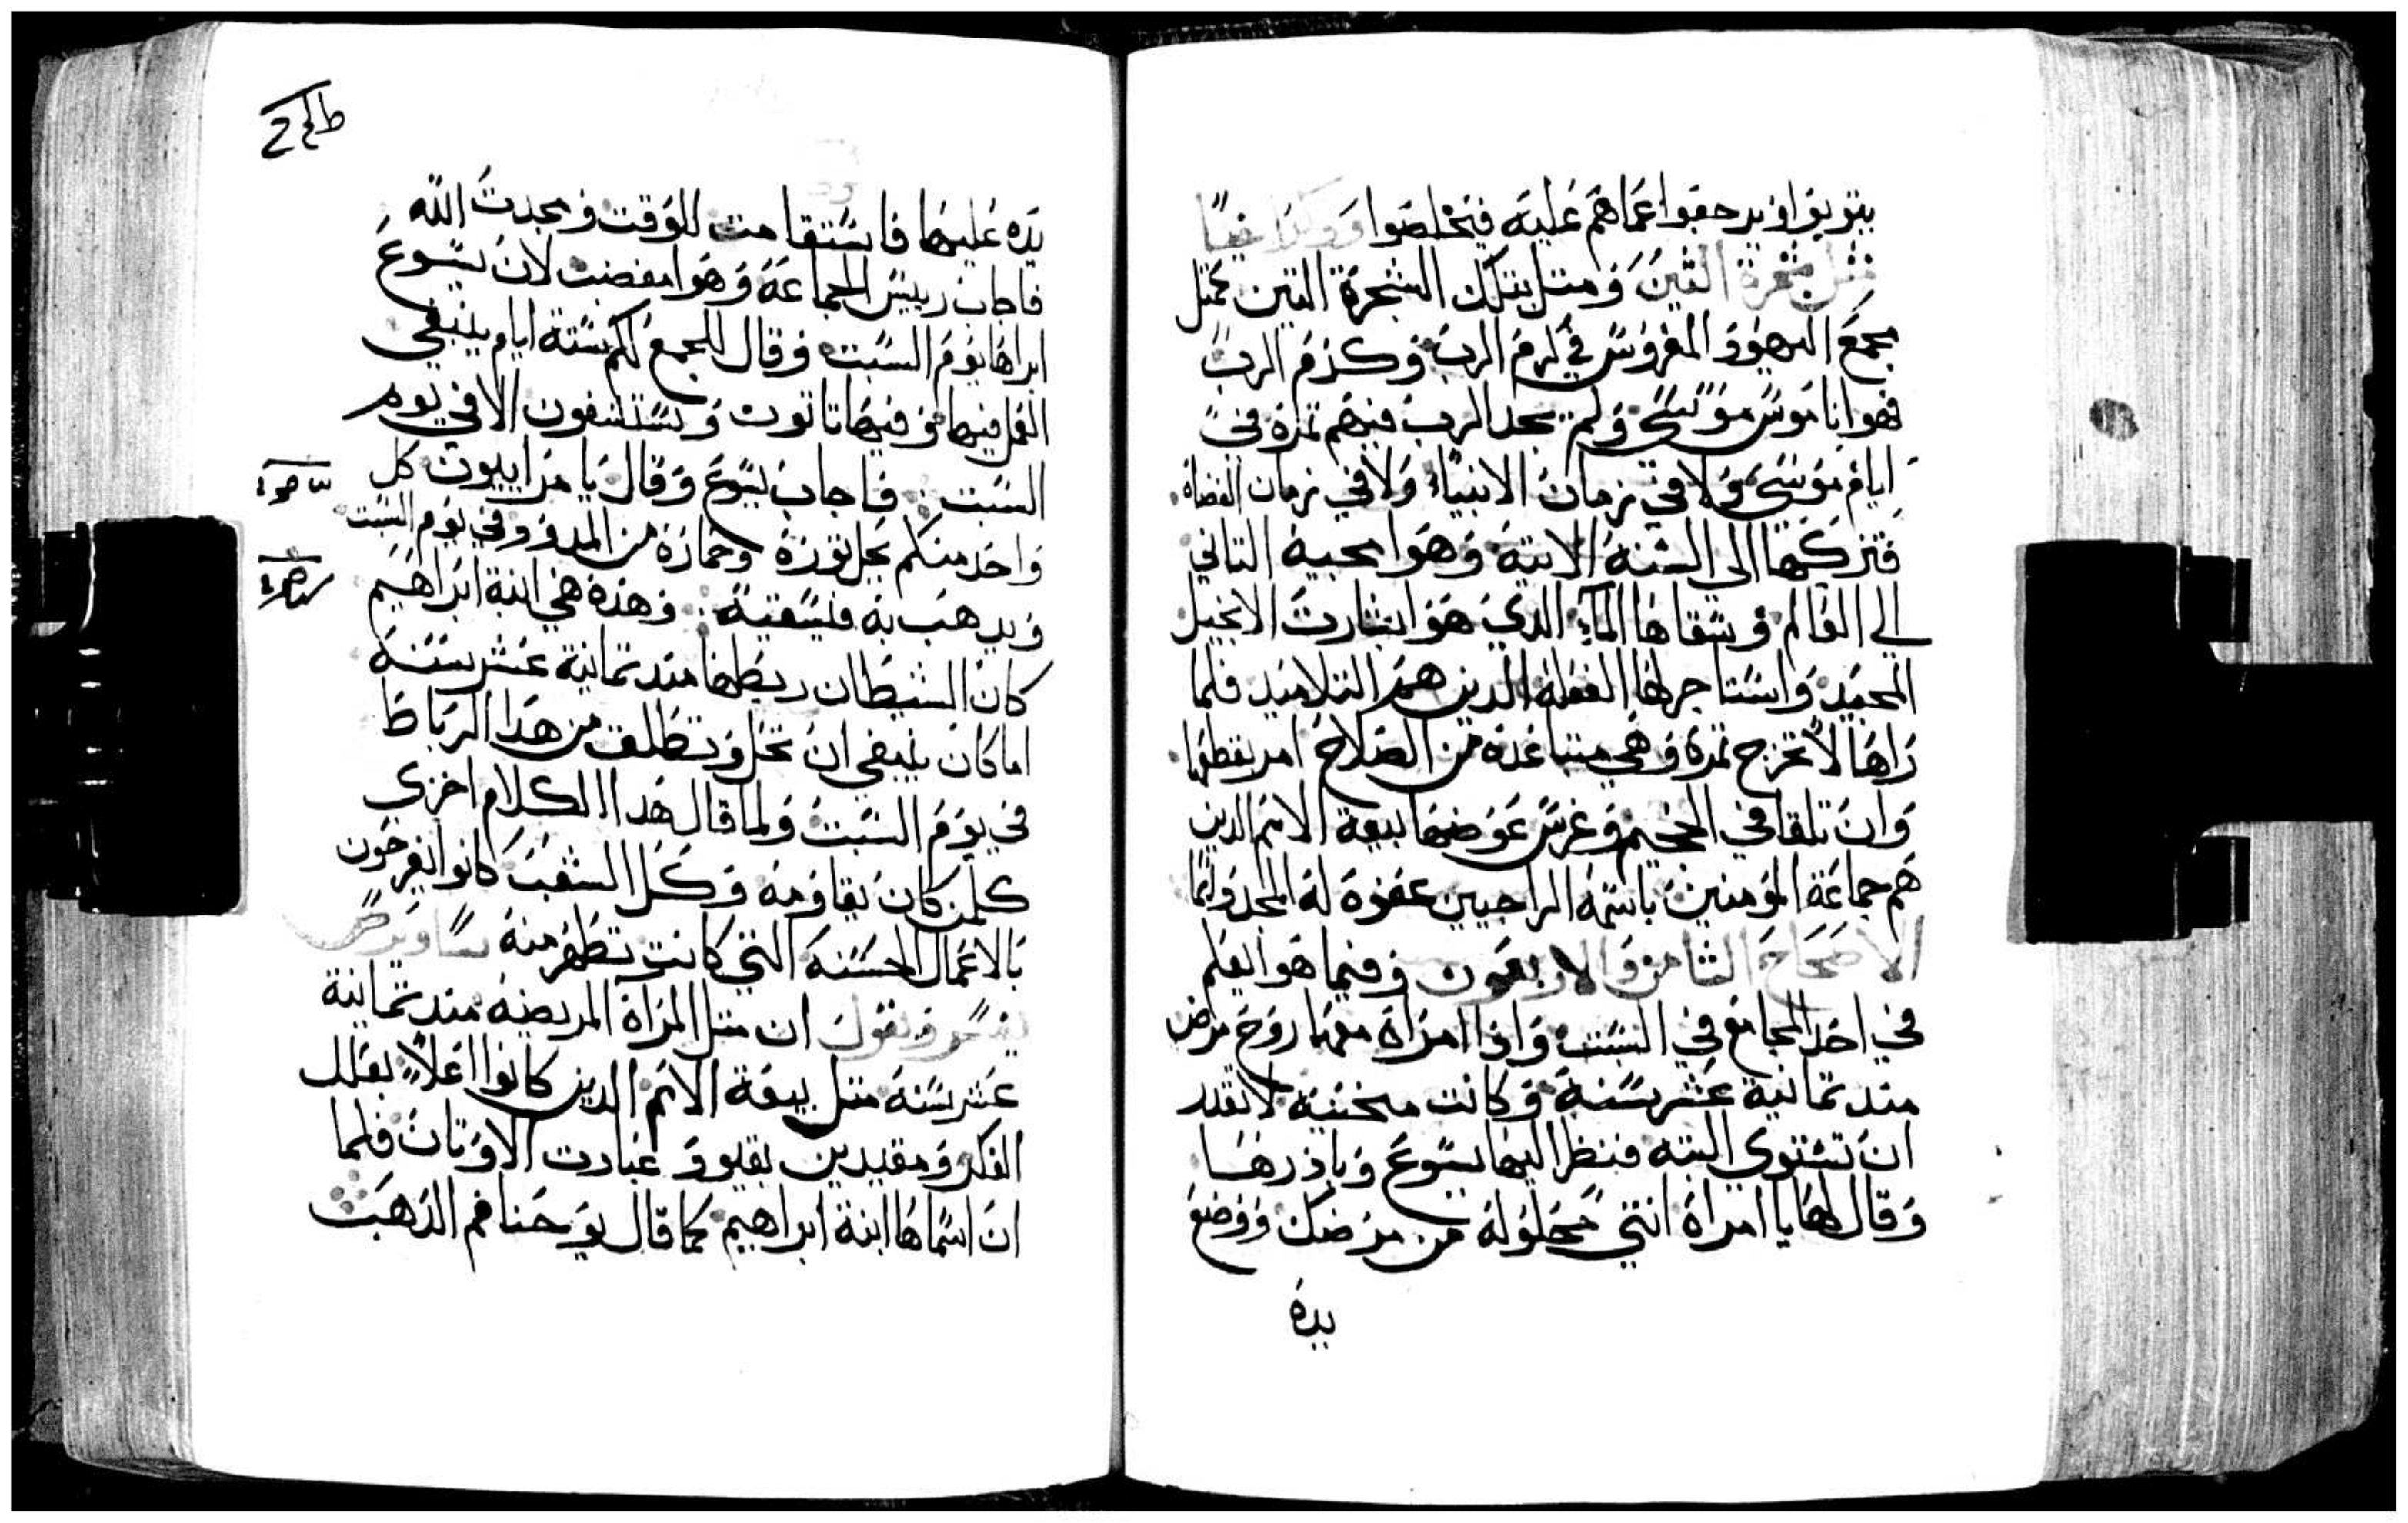 بتوبتوا ويرجعوا عماهم عليه فيخلصوا
مثل شجرة التين ومثل بتلك الشجرة التين بمثل
مجمع اليهود المغروس في كرم الرب وكرم الرب
فهو ناموس موسى ولم يجد الرب فيهم تمرة في
ايام موسى ولا في زمان الانبياء ولا في زمان القضاة
فتركها الى السنة الاتية وهوا مجيه التاني
الى العالم وسقاها المآء الدي هوا بشارت الانجيل
المجيد واستاجر لها الفعلة الدين هم التلاميد فلما
راها لا تخرج تمرة وهي متباعدة من الصلاح امر بقطعها
وان تلقا في الجحيم وغرس عوضها بيعة الامم الدين
هم جماعة المومنين باسمه الراجيين عفوه له المجد دايما
الاصحاح الثامن والاربعون وفيما هو ايعلم
في احد المجامع في السبت واذا امراة معها روح مرض
مند تمانية عشر سنة وكانت منحنية لا تقدر
ان تستوي البته فنظر اليها يسوع وباذرها
وقال لها يا امراة انتي محلوله من مرضك ووضع
يده
يده عليها فاستقامت للوقت ومجدت الله
فاجاب رييس الجماعة وهوا مغضب لان يسوع
ابراها يوم السبت وقال للجمع لكم ستة ايام ينبغي
العمل فيها وفيها تاتون وتستشفون الا في يوم
السبت فاجاب يسوع وقال يا مراييون كل
واحد منكم يحل توره وحماره من المدود في يوم السبت
ويدهب به فيسقيه وهذه هي ابنة ابراهيم
كان الشيطان ربطها مند تمانية عشر سنة
اما كان ينبغي ان تحل وتطلق من هدا الرباط
في يوم السبت ولما قال هدا الكلام اخزي
كلمن كان يقاومه وكل الشعب كانوا يفرحون
بالاعمال الحسنة التي كانت تظهر منه
يفسر ويقول ان متل المراة المريضة مند تمانية
عشر سنة متل بيعة الامم الدين كانوا اعلاّ بعلل
الفكر ومقيدين بقيود عبادت الاوتان فلما
ان اسماها ابنة ابراهيم كما قال يوحنا فم الدهب